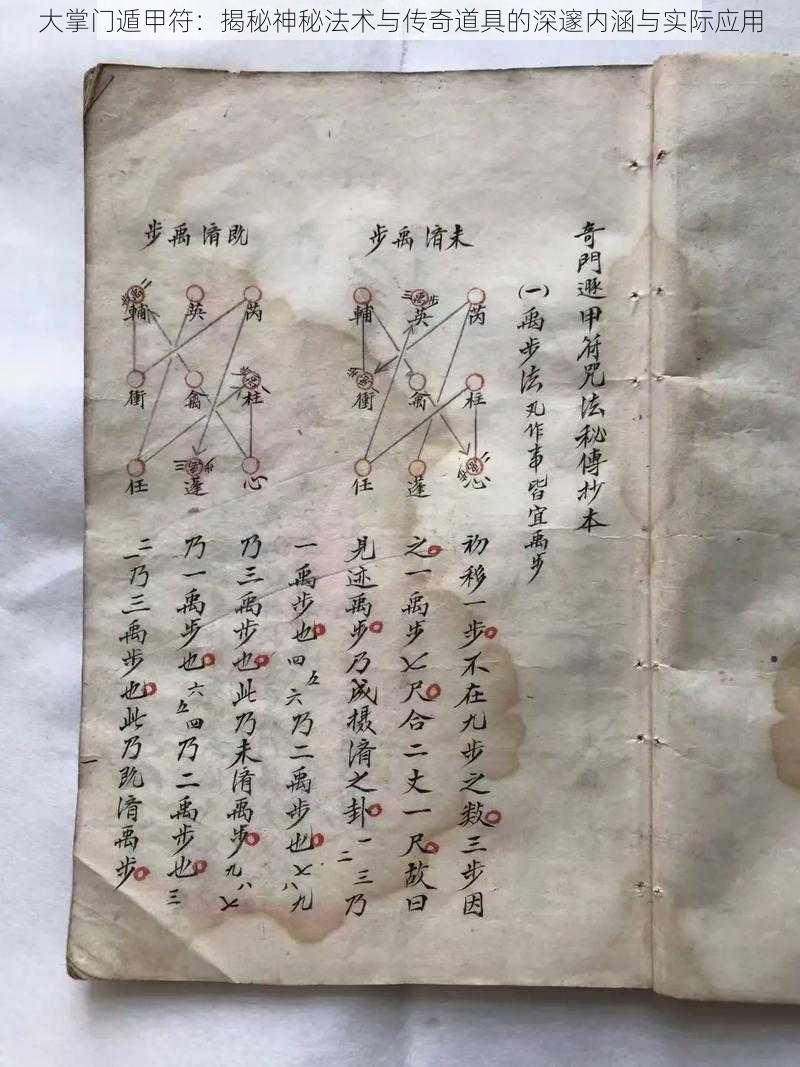 大掌门遁甲符：揭秘神秘法术与传奇道具的深邃内涵与实际应用
奇門遯甲符咒法秘傳抄本
(一)禹步法 凡作事皆宜禹步
未濟禹步
輔 英 芮
衝 禽 柱
任 蓬 心
既濟禹步
輔 英 芮
衝 禽 柱
任 蓬 心
初移一步。不在九步之数。三步因
之。一禹步七尺。合二丈一尺。故曰
見迹禹步。乃成摄濟之卦。一二三乃
一禹步也。四五六乃二禹步也。七八九
乃三禹步也。此乃未濟禹步。九八七
乃一禹步也。六五四乃二禹步也。三
二一乃三禹步也。此乃既濟禹步。